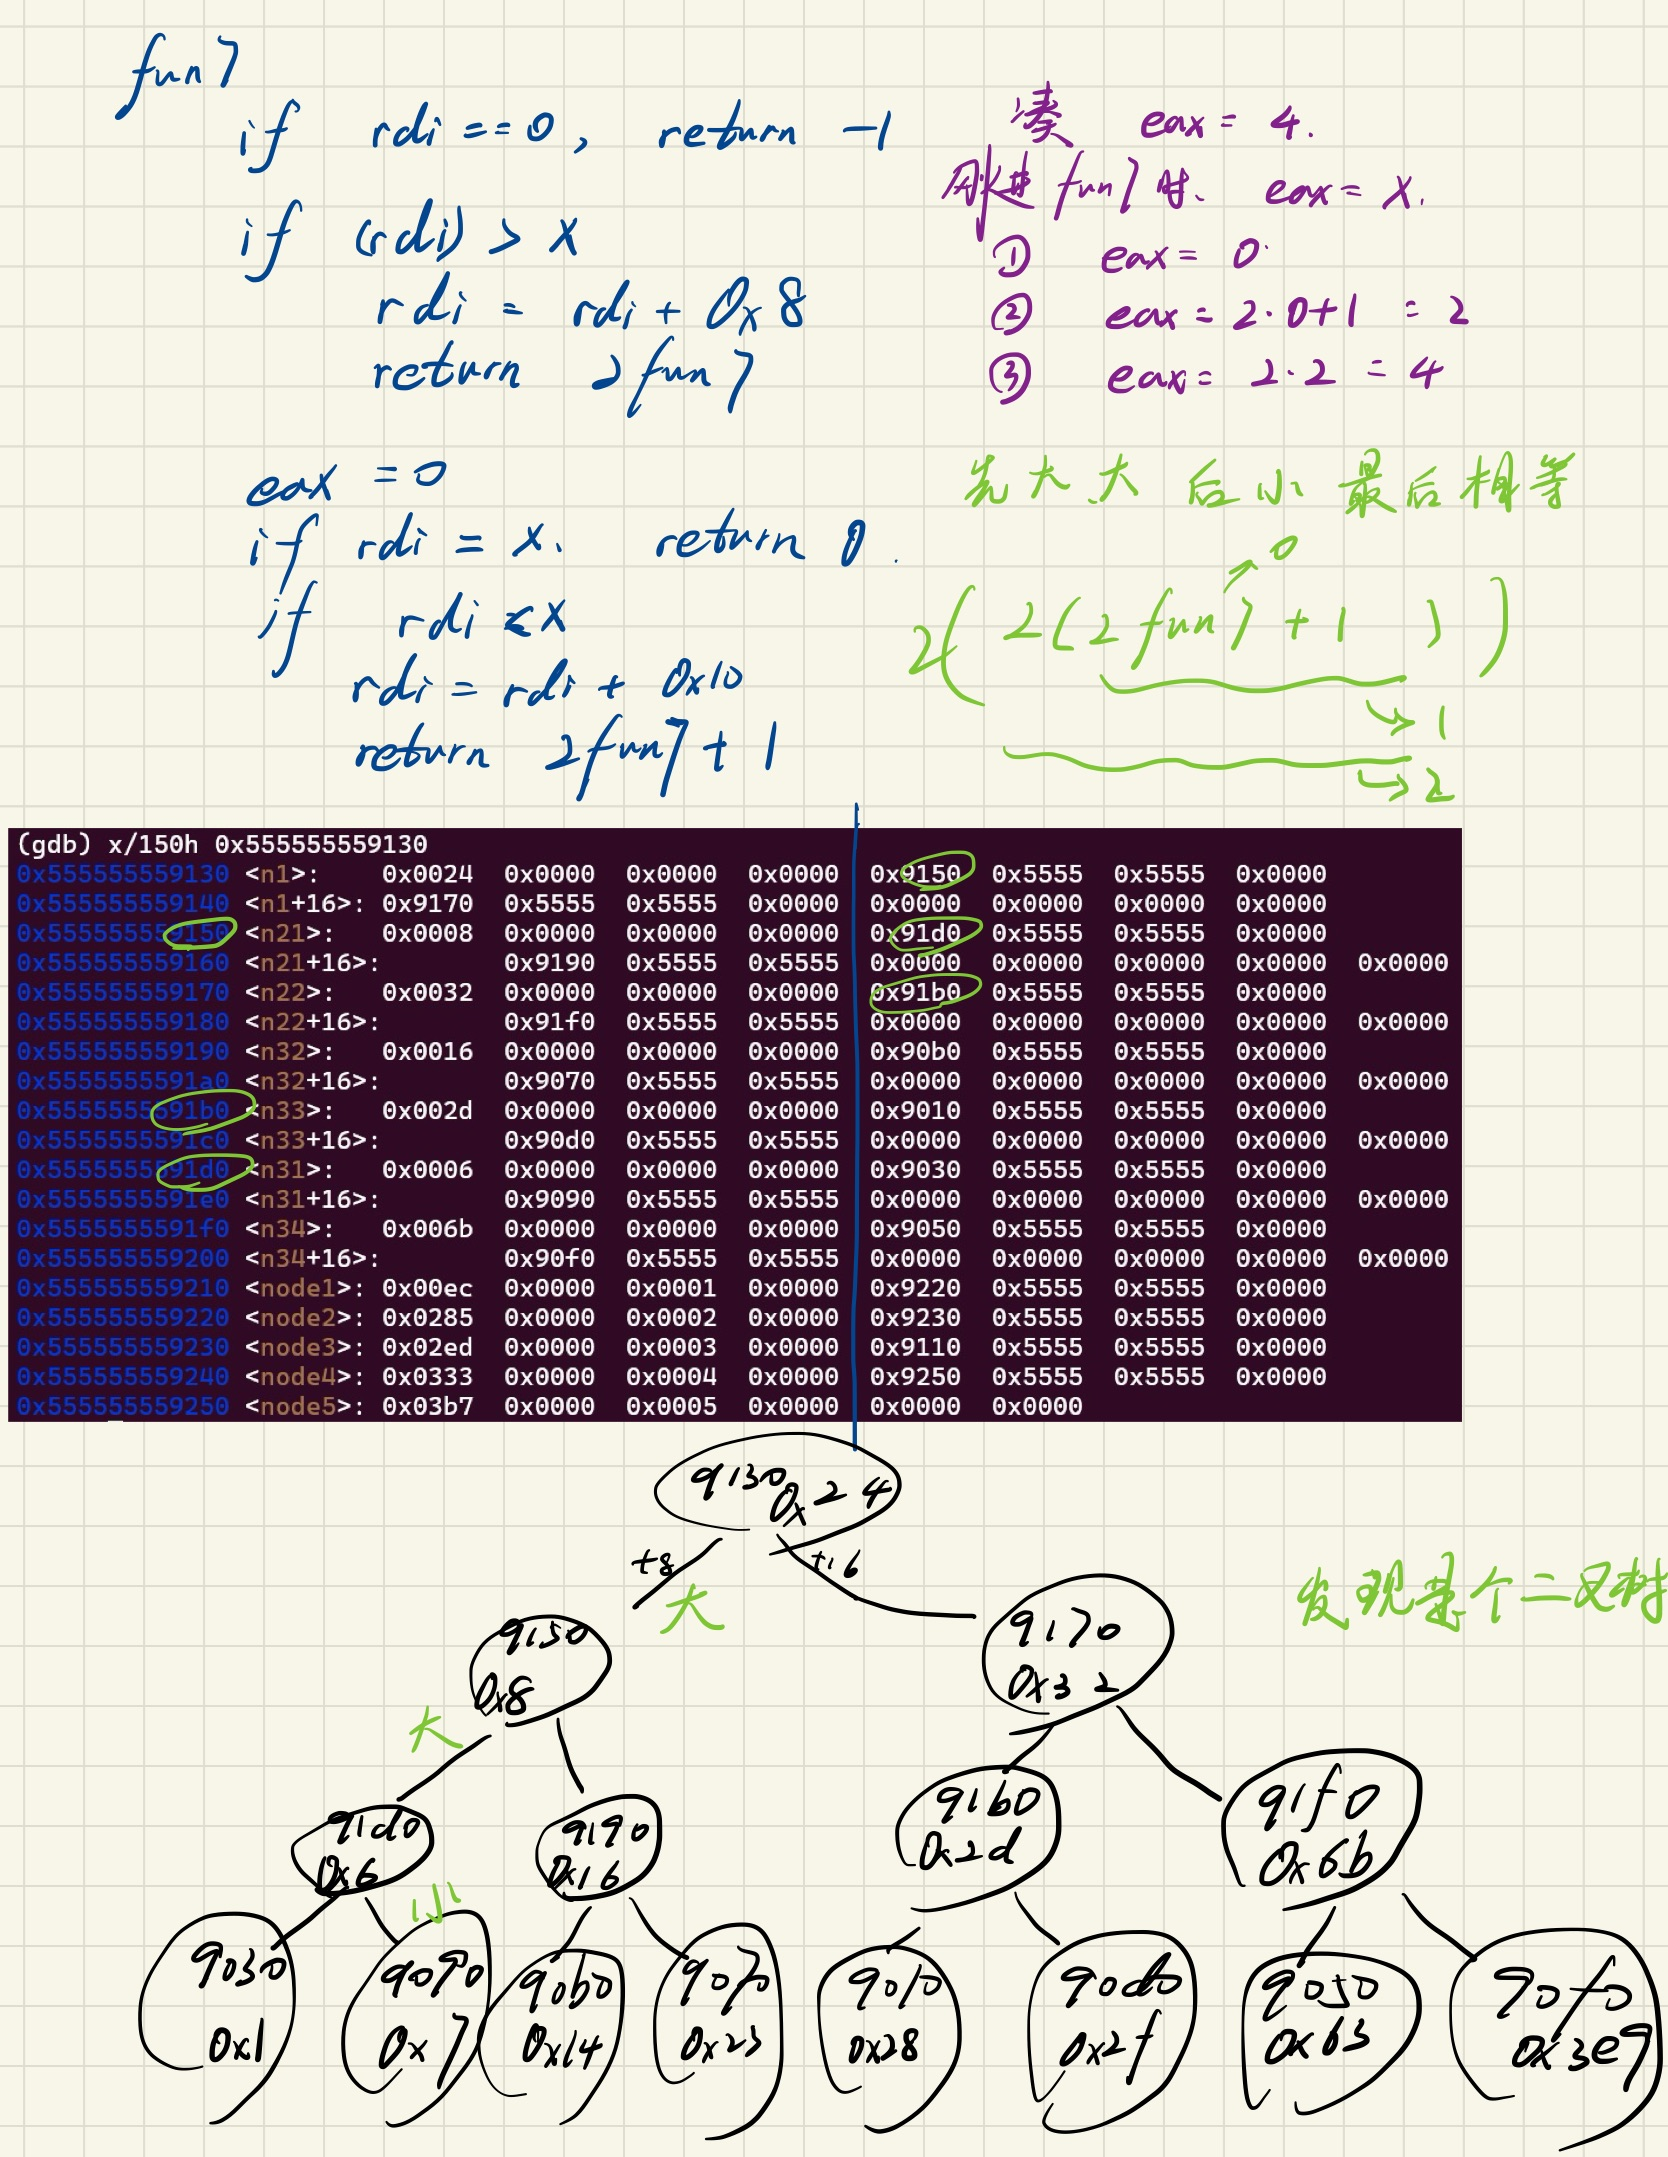 fun7
if rdi == 0, return -1
if (rdi) > x
rdi = rdi + 0x8
return 2fun7
eax = 0
if rdi = x. return 0.
if rdi < x
rdi = rdi + 0x10
return 2fun7 + 1
凑 eax = 4.
刚进 fun7 时. eax = x.
① eax = 0.
② eax = 2·0+1 = 2
③ eax = 2·2 = 4
先大大后小最后相等
0
2( 2(2fun7 + 1 ) )
1
2
(gdb) x/150h 0x555555559130
0x555555559130 <n1>: 0x0024 0x0000 0x0000 0x0000 0x9150 0x5555 0x5555 0x0000
0x555555559140 <n1+16>: 0x9170 0x5555 0x5555 0x0000 0x0000 0x0000 0x0000 0x0000
0x555555559150 <n21>: 0x0008 0x0000 0x0000 0x0000 0x91d0 0x5555 0x5555 0x0000
0x555555559160 <n21+16>: 0x9190 0x5555 0x5555 0x0000 0x0000 0x0000 0x0000 0x0000
0x555555559170 <n22>: 0x0032 0x0000 0x0000 0x0000 0x91b0 0x5555 0x5555 0x0000
0x555555559180 <n22+16>: 0x91f0 0x5555 0x5555 0x0000 0x0000 0x0000 0x0000 0x0000
0x555555559190 <n32>: 0x0016 0x0000 0x0000 0x0000 0x90b0 0x5555 0x5555 0x0000
0x5555555591a0 <n32+16>: 0x9070 0x5555 0x5555 0x0000 0x0000 0x0000 0x0000 0x0000
0x5555555591b0 <n33>: 0x002d 0x0000 0x0000 0x0000 0x9010 0x5555 0x5555 0x0000
0x5555555591c0 <n33+16>: 0x90d0 0x5555 0x5555 0x0000 0x0000 0x0000 0x0000 0x0000
0x5555555591d0 <n31>: 0x0006 0x0000 0x0000 0x0000 0x9030 0x5555 0x5555 0x0000
0x5555555591e0 <n31+16>: 0x9090 0x5555 0x5555 0x0000 0x0000 0x0000 0x0000 0x0000
0x5555555591f0 <n34>: 0x006b 0x0000 0x0000 0x0000 0x9050 0x5555 0x5555 0x0000
0x555555559200 <n34+16>: 0x90f0 0x5555 0x5555 0x0000 0x0000 0x0000 0x0000 0x0000
0x555555559210 <node1>: 0x00ec 0x0000 0x0001 0x0000 0x9220 0x5555 0x5555 0x0000
0x555555559220 <node2>: 0x0285 0x0000 0x0002 0x0000 0x9230 0x5555 0x5555 0x0000
0x555555559230 <node3>: 0x02ed 0x0000 0x0003 0x0000 0x9110 0x5555 0x5555 0x0000
0x555555559240 <node4>: 0x0333 0x0000 0x0004 0x0000 0x9250 0x5555 0x5555 0x0000
0x555555559250 <node5>: 0x03b7 0x0000 0x0005 0x0000 0x0000 0x0000
9130 0x24
+8 +16
大
发现是个二叉树
9150 9170
0x8 0x32
大
91d0 9190 91b0 91f0
0x6 0x16 0x2d 0x6b
小
9030 9090 90b0 9070 9010 90d0 9050 90f0
0x1 0x7 0x14 0x23 0x28 0x2f 0x63 0x3e9